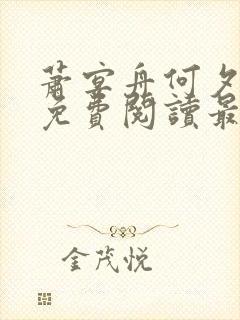 蕭宴舟何夕
免費閱讀最
金茂悦